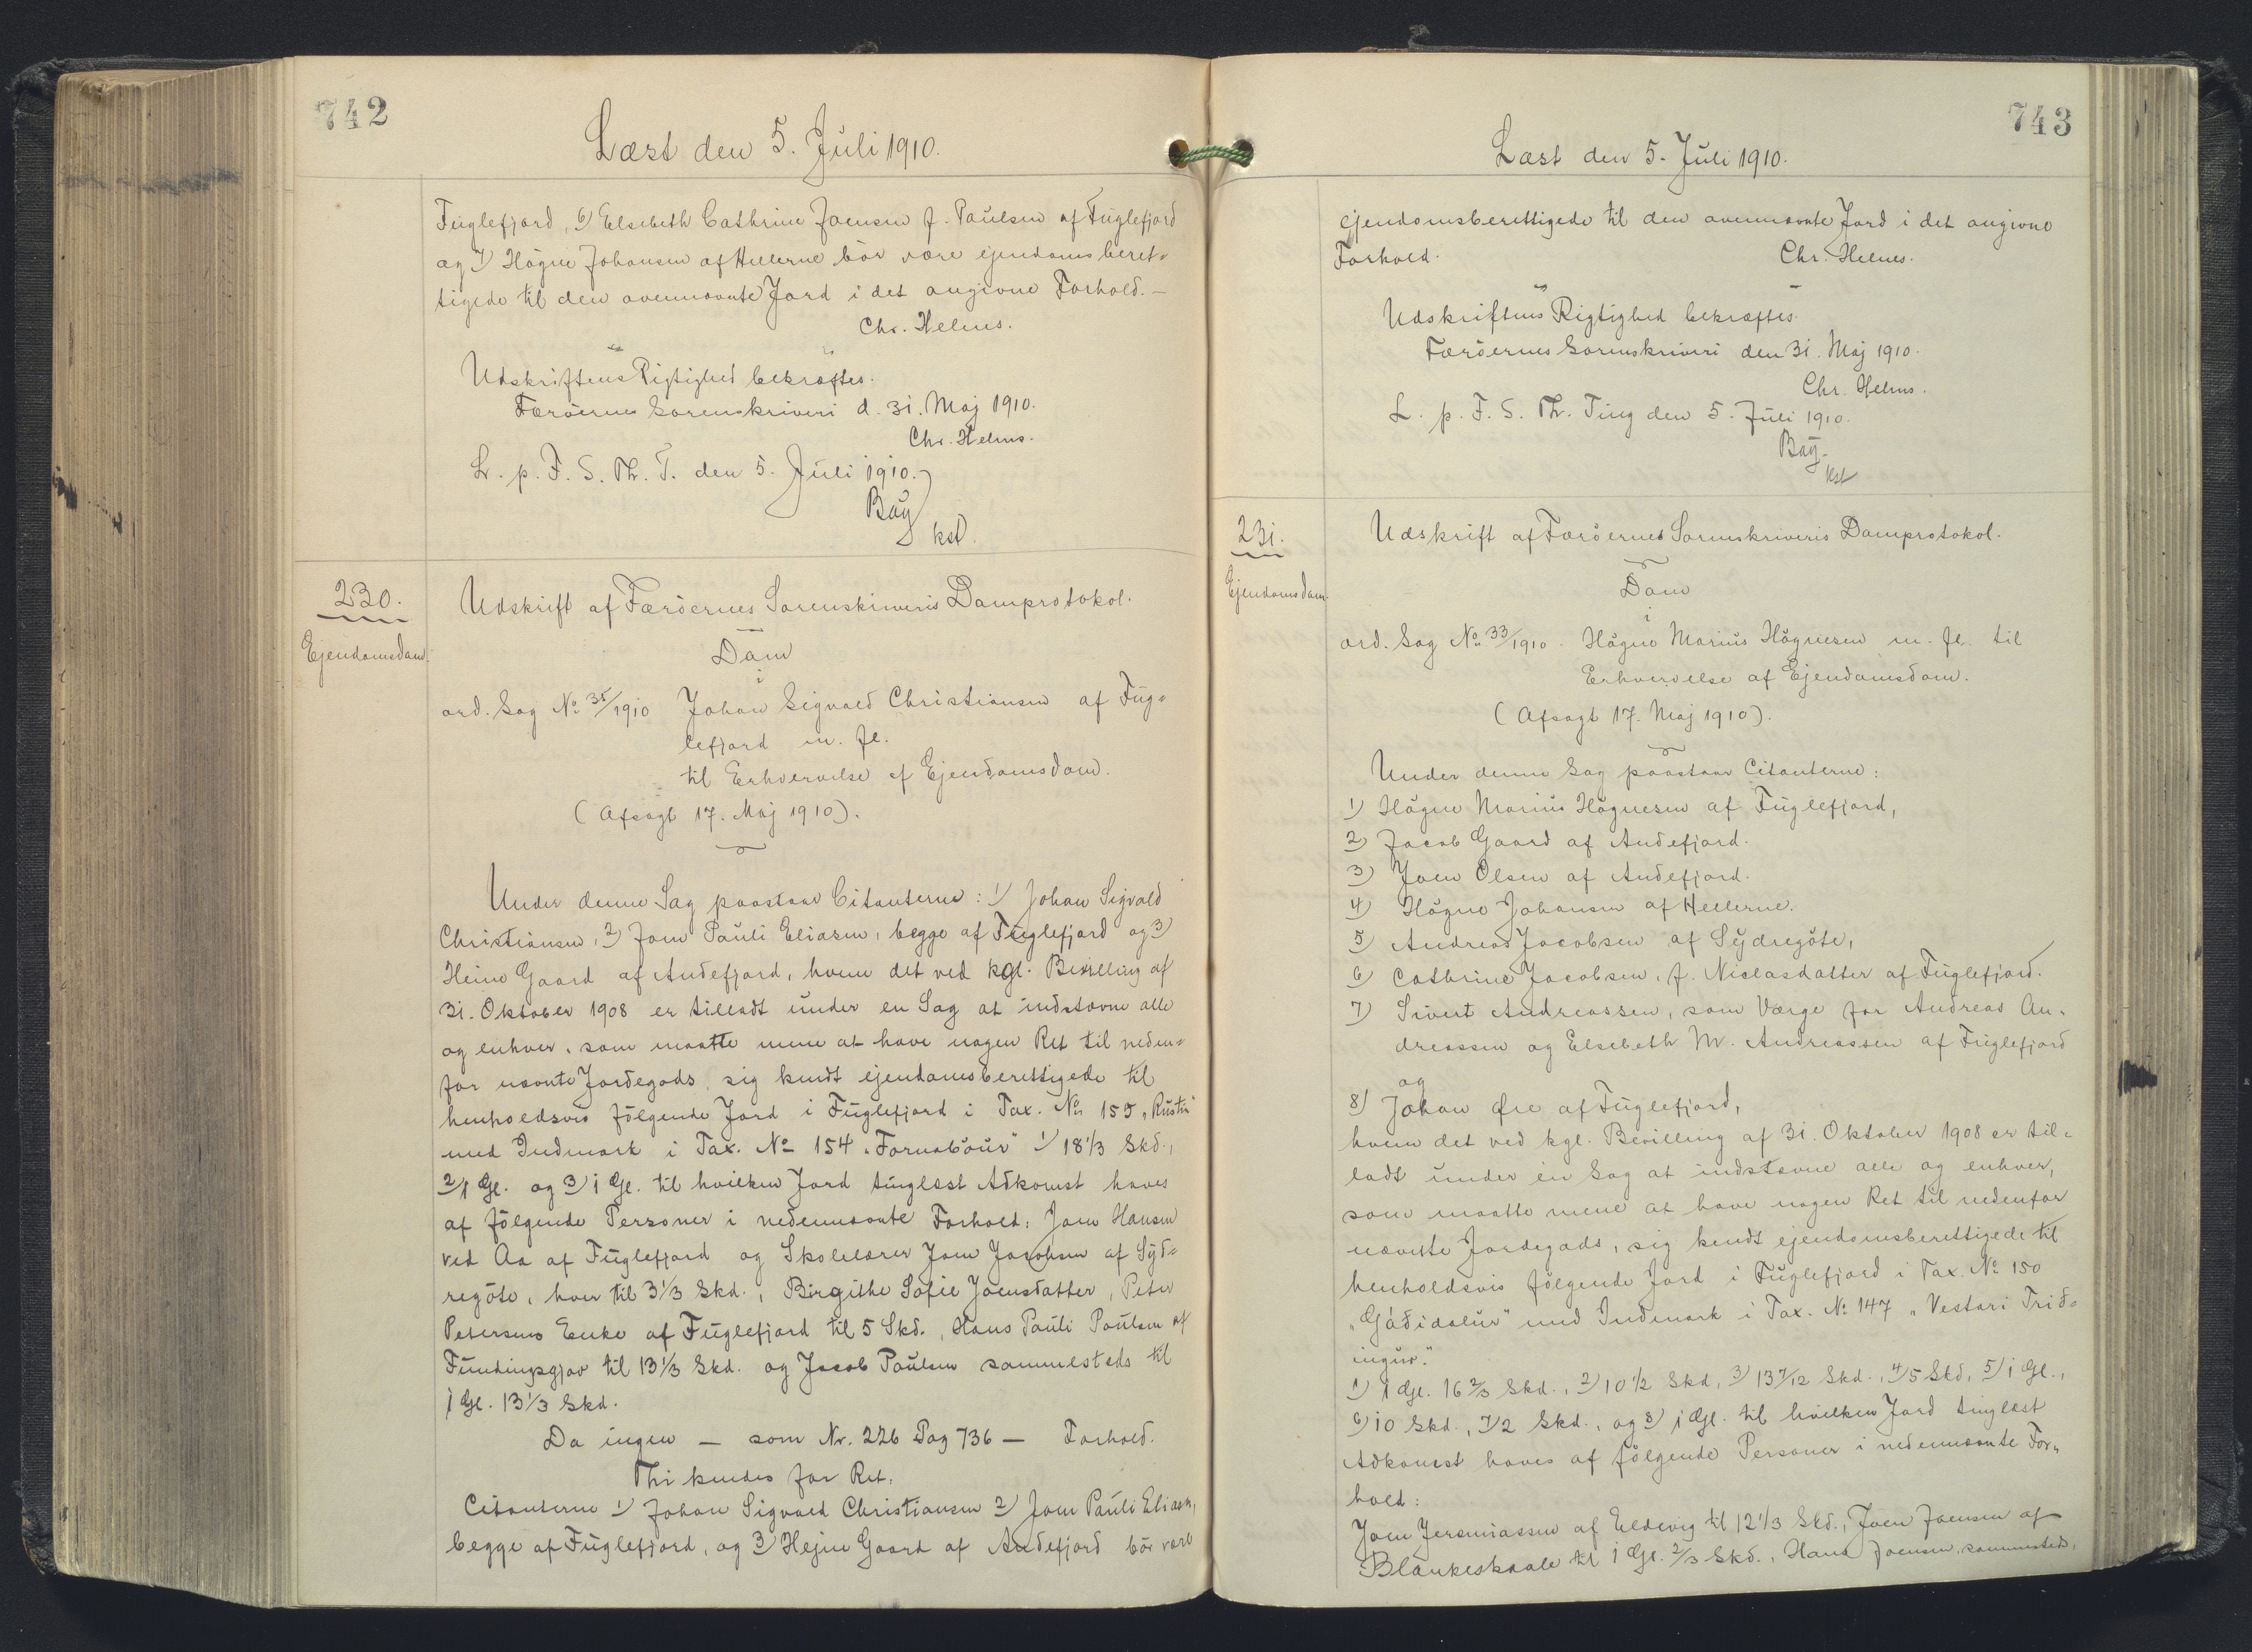 742
Læst den 5. Juli 1910.
Fuglefjord, 6) Elsebeth Cathrine Joensen f. Paulsen af Fuglefjord
og 7) Högne Johansen af Hellerne bör være ejendomsberet-
tigede til den ovennævnte Jord i det angivne Forhold. —
Chr. Helms.
Udskriftens Rigtighed bekræftes.
Færöernes Sorenskriveri d. 31. Maj 1910.
Chr. Helms.
L. p. F. S. Th. T. den 5. Juli 1910.
Bay
kst.
230.
Ejendomsdom.
Udskrift af Færöernes Sorenskriveris Domprotokol.
Dom
i
ord. Sag No 35/1910 Johan Sigvald Christiansen af Fug-
lefjord m. fl.
til Erhvervelse af Ejendomsdom.
(Afsagt 17. Maj 1910).
Under denne Sag paastaar Citanterne: 1) Johan Sigvald
Christiansen, 2) Joen Pauli Eliasen, begge af Fuglefjord og 3)
Heine Gaard af Andefjord, hvem det ved kgl. Bevilling af
31. Oktober 1908 er tilladt under en Sag at indstævne alle
og enhver, som maatte mene at have nogen Ret til neden-
for nævnte Jordegods, sig kendt ejendomsberettigede til
henholdsvis fölgende Jord i Fuglefjord i Tax. No 155 "Rustin"
med Indmark i Tax. No 154 "Fornaböur" 1) 18 1/3 Skd.,
2) 1 Gl. og 3) 1 Gl. til hvilken Jord tinglæst Adkomst haves
af fölgende Personer i nedennævnte Forhold: Joen Hansen
ved Aa af Fuglefjord og Skolelærer Joen Jacobsen af Syd-
regöte, hver til 3 1/3 Skd., Birgithe Sofie Joensdatter, Peter
Petersens Enke af Fuglefjord til 5 Skd., Hans Pauli Poulsen af
Fundingsgjov til 13 1/3 Skd. og Jacob Poulsen sammesteds til
1 Gl. 13 1/3 Skd.
Da ingen — som Nr. 226 Pag 736 — Forhold.
Thi kendes for Ret:
Citanterne 1) Johan Sigvald Christiansen 2) Joen Pauli Eliasen,
begge af Fuglefjord, og 3) Hejne Gaard af Andefjord bör være
743
Læst den 5. Juli 1910.
ejendomsberettigede til den ovennævnte Jord i det angivne
Forhold.
Chr. Helms.
Udskriftens Rigtighed bekræftes.
Færöernes Sorenskriveri den 31. Maj 1910.
Chr. Helms.
L. p. F. S. Th. Ting den 5. Juli 1910.
Bay.
kst
231.
Ejendomsdom.
Udskrift af Færöernes Sorenskriveris Domprotokol.
Dom
i
ord. Sag No 33/1910. Högne Marius Högnesen m. fl. til
Erhvervelse af Ejendomsdom.
(Afsagt 17. Maj 1910).
Under denne Sag paastaar Citanterne:
1) Högne Marius Högnesen af Fuglefjord,
2) Jacob Gaard af Andefjord.
3) Joen Olsen af Andefjord.
4) Högne Johansen af Hellerne.
5) Andreas Jacobsen af Sydregöte,
6) Cathrine Jacobsen, f. Niclasdatter af Fuglefjord.
7) Sivert Andreassen, som Værge for Andreas An-
dreassen og Elsebeth M. Andreassen af Fuglefjord
og
8) Johan Øre af Fuglefjord,
hvem det ved kgl. Bevilling af 31. Oktober 1908 er til-
ladt under en Sag at indstævne alle og enhver,
som maatte mene at have nogen Ret til nedenfor
nævnte Jordegods, sig kendt ejendomsberettigede til
henholdsvis fölgende Jord i Fuglefjord i Tax. No 150
"Gádidalur" med Indmark i Tax. No 147 "Vestari Trid-
ingur."
1) 1 Gl. 16 2/3 Skd., 2) 10 1/2 Skd, 3) 13 7/12 Skd., 4) 5 Skd, 5) 1 Gl.,
6) 10 Skd., 7) 2 Skd., og 8) 1 Gl. til hvilken Jord tinglæst
Adkomst haves af fölgende Personer i nedennævnte For-
hold:
Joen Jeremiassen af Eldevig til 12 1/3 Skd., Joen Joensen af
Blankeskaale til 1 Gl. 2/3 Skd., Hans Joensen, sammesteds,